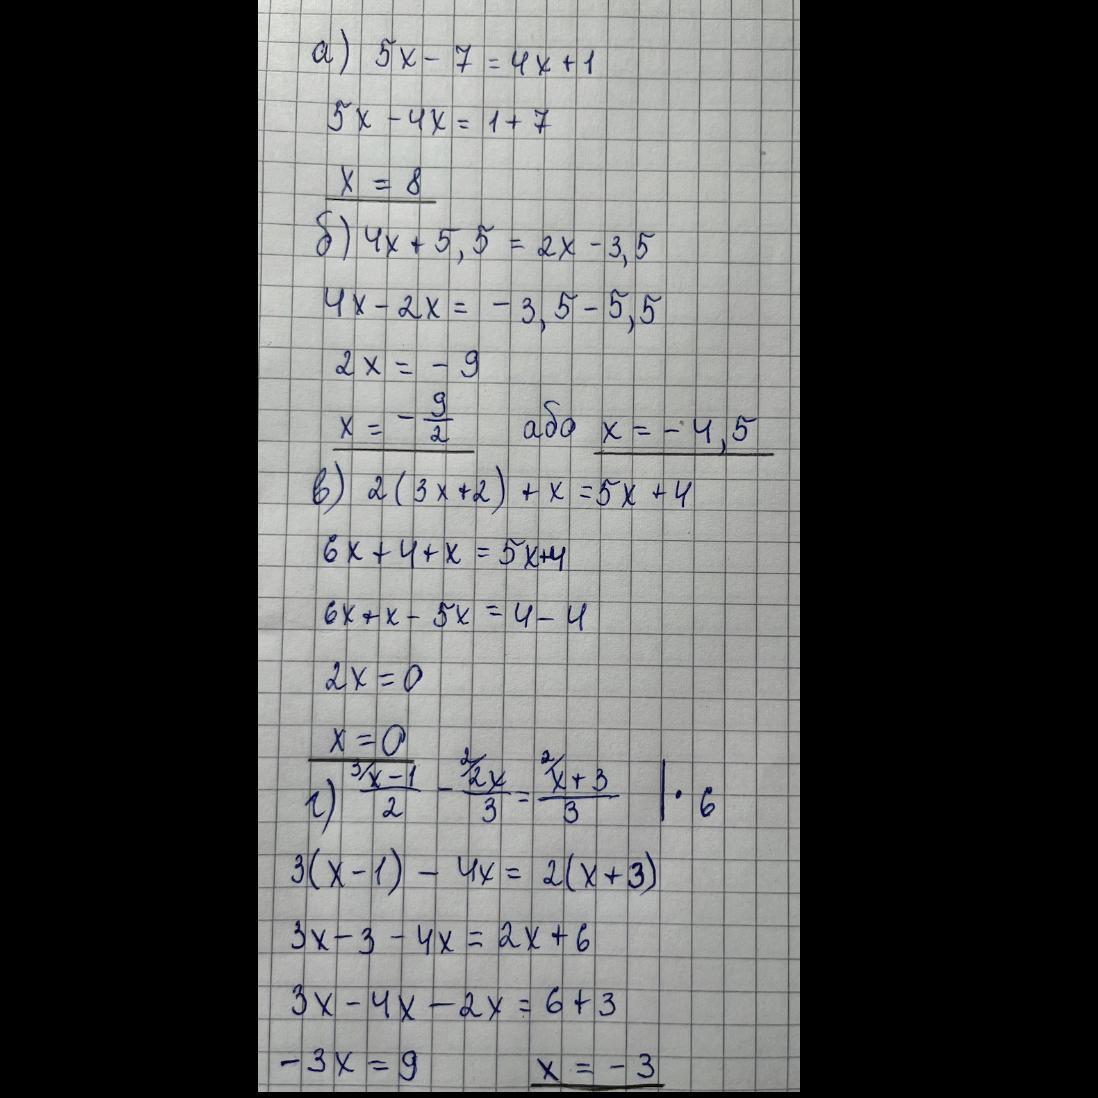 а) 5x - 7 = 4x + 1
5x - 4x = 1 + 7
x = 8
б) 4x + 5,5 = 2x - 3,5
4x - 2x = - 3,5 - 5,5
2x = - 9
x = - 9/2 або x = - 4,5
в) 2(3x+2) + x = 5x + 4
6x + 4 + x = 5x+4
6x + x - 5x = 4 - 4
2x = 0
x = 0
г) 3/ (x-1)/2 - 2/ 2x/3 = 2/ (x+3)/3 | · 6
3(x-1) - 4x = 2(x+3)
3x - 3 - 4x = 2x + 6
3x - 4x - 2x = 6 + 3
-3x = 9 x = - 3